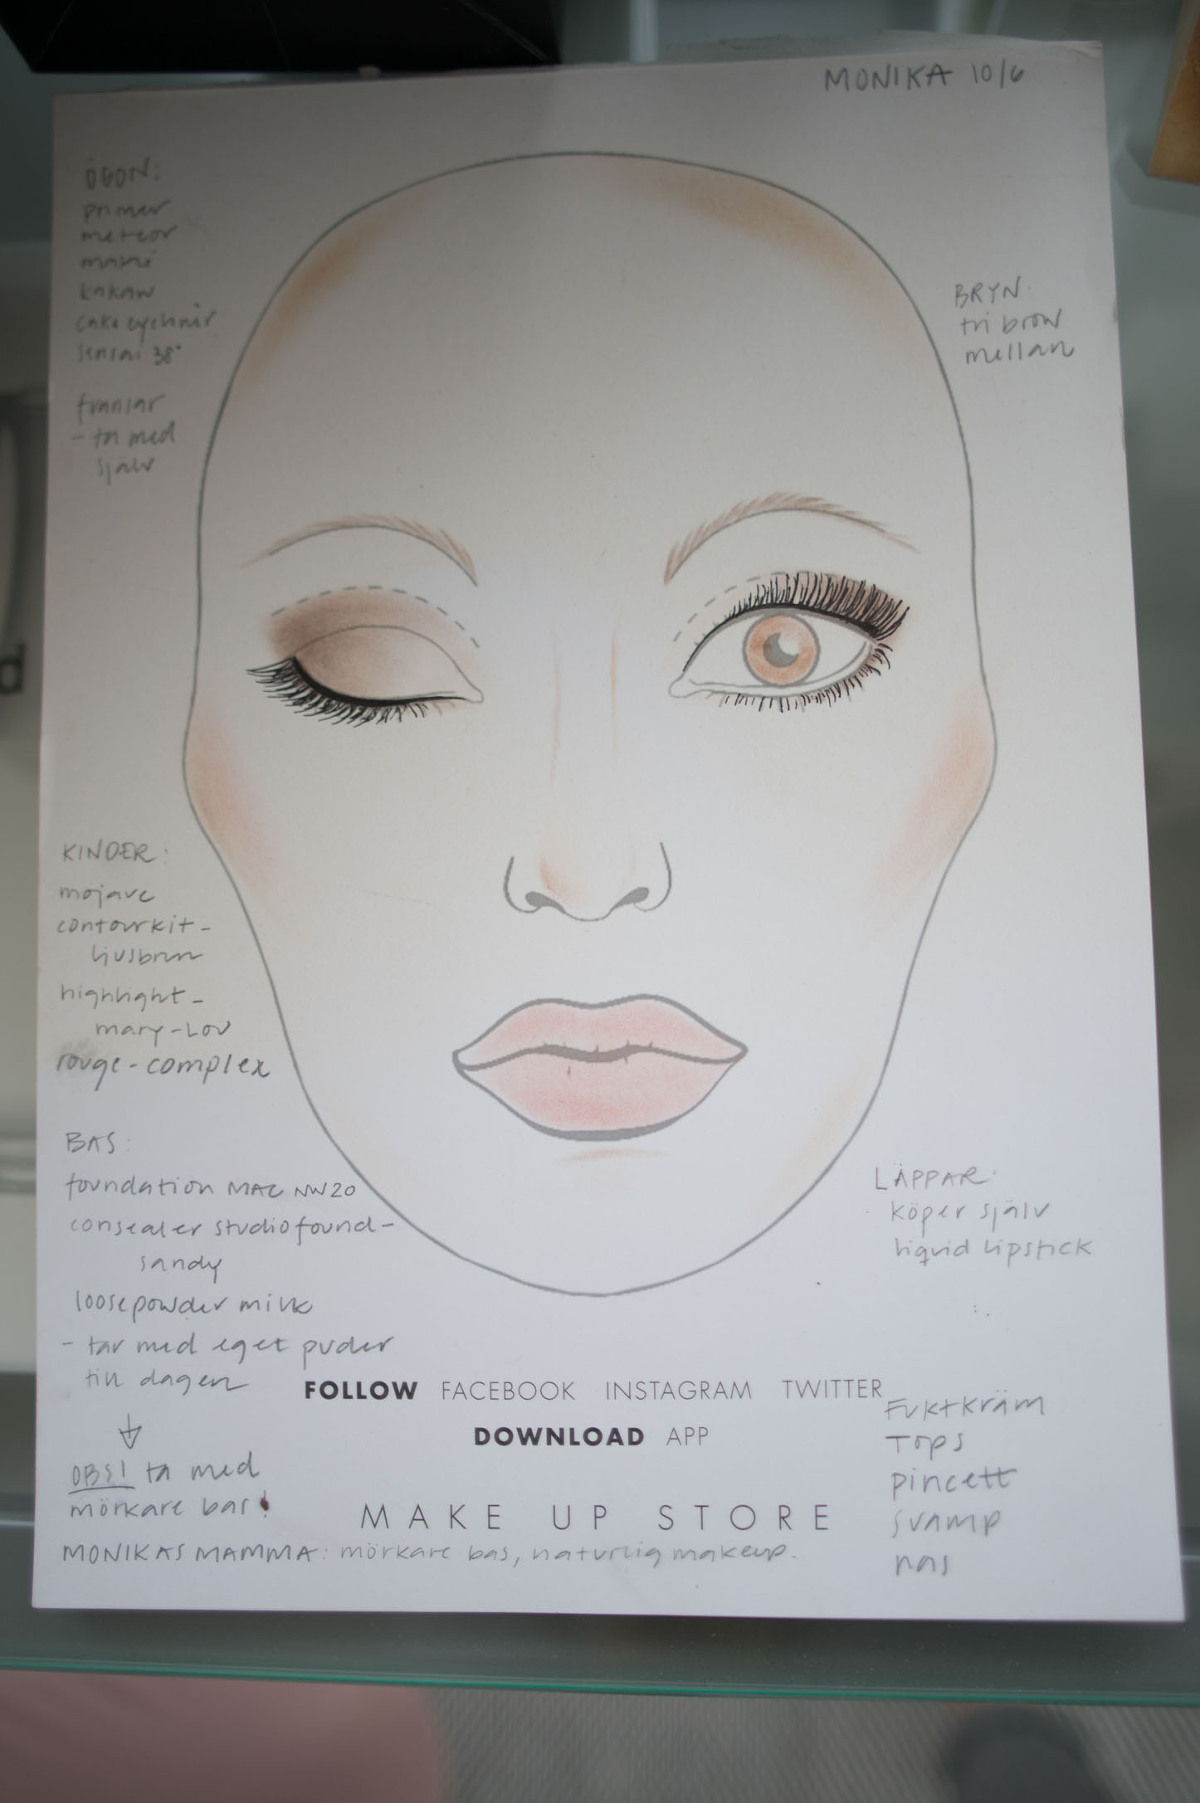 MONIKA 10/6
ÖGON:
primer
meteor
kakaw
cake eyeliner
sensai 38°
fransar
- ta med
själv
BRYN:
tri brow
mellan
KINDER:
mojave
contourkit-
ljusbrun
highlight-
mary-Lou
rouge-complex
BAS:
foundation MAC NW20
consealer studiofound-
sandy
loosepowder milk
- tar med eget puder
till dagen
OBS! ta med
mörkare bas!
LÄPPAR:
köper själv
liquid lipstick
FOLLOW FACEBOOK INSTAGRAM TWITTER
DOWNLOAD APP
MAKE UP STORE
Fuktkräm
Tops
pincett
svamp
MONIKAS MAMMA: mörkare bas, naturlig makeup.
d